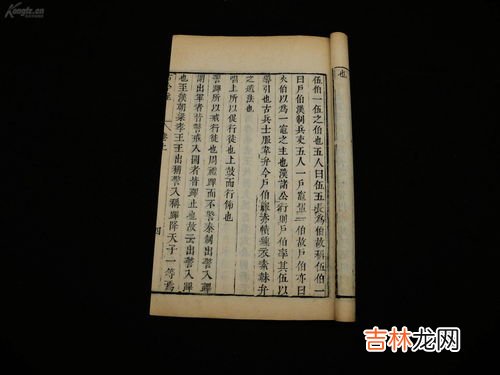 也
伍伯一伍之伯也五人曰伍五長為伯故稱伍伯一
曰戶伯漢制兵吏五人一戶竈置一伯故戶伯亦曰
火伯以為一竈之主也漢諸公行則戶伯率其伍以
導引也古兵士服韋弁今戶伯服赤幘纁衣素韎弁
之遺法也
唱上所以促行徒也上鼓而行節也
警蹕所以戒行徒也周禮蹕而不警秦制出警入蹕
謂出軍者皆警戒入國者皆蹕止也故云出警入蹕
也至漢朝梁孝王王出稱警入稱蹕降天子一等焉
卷上
四
Kongfz.cn
吉林龙网